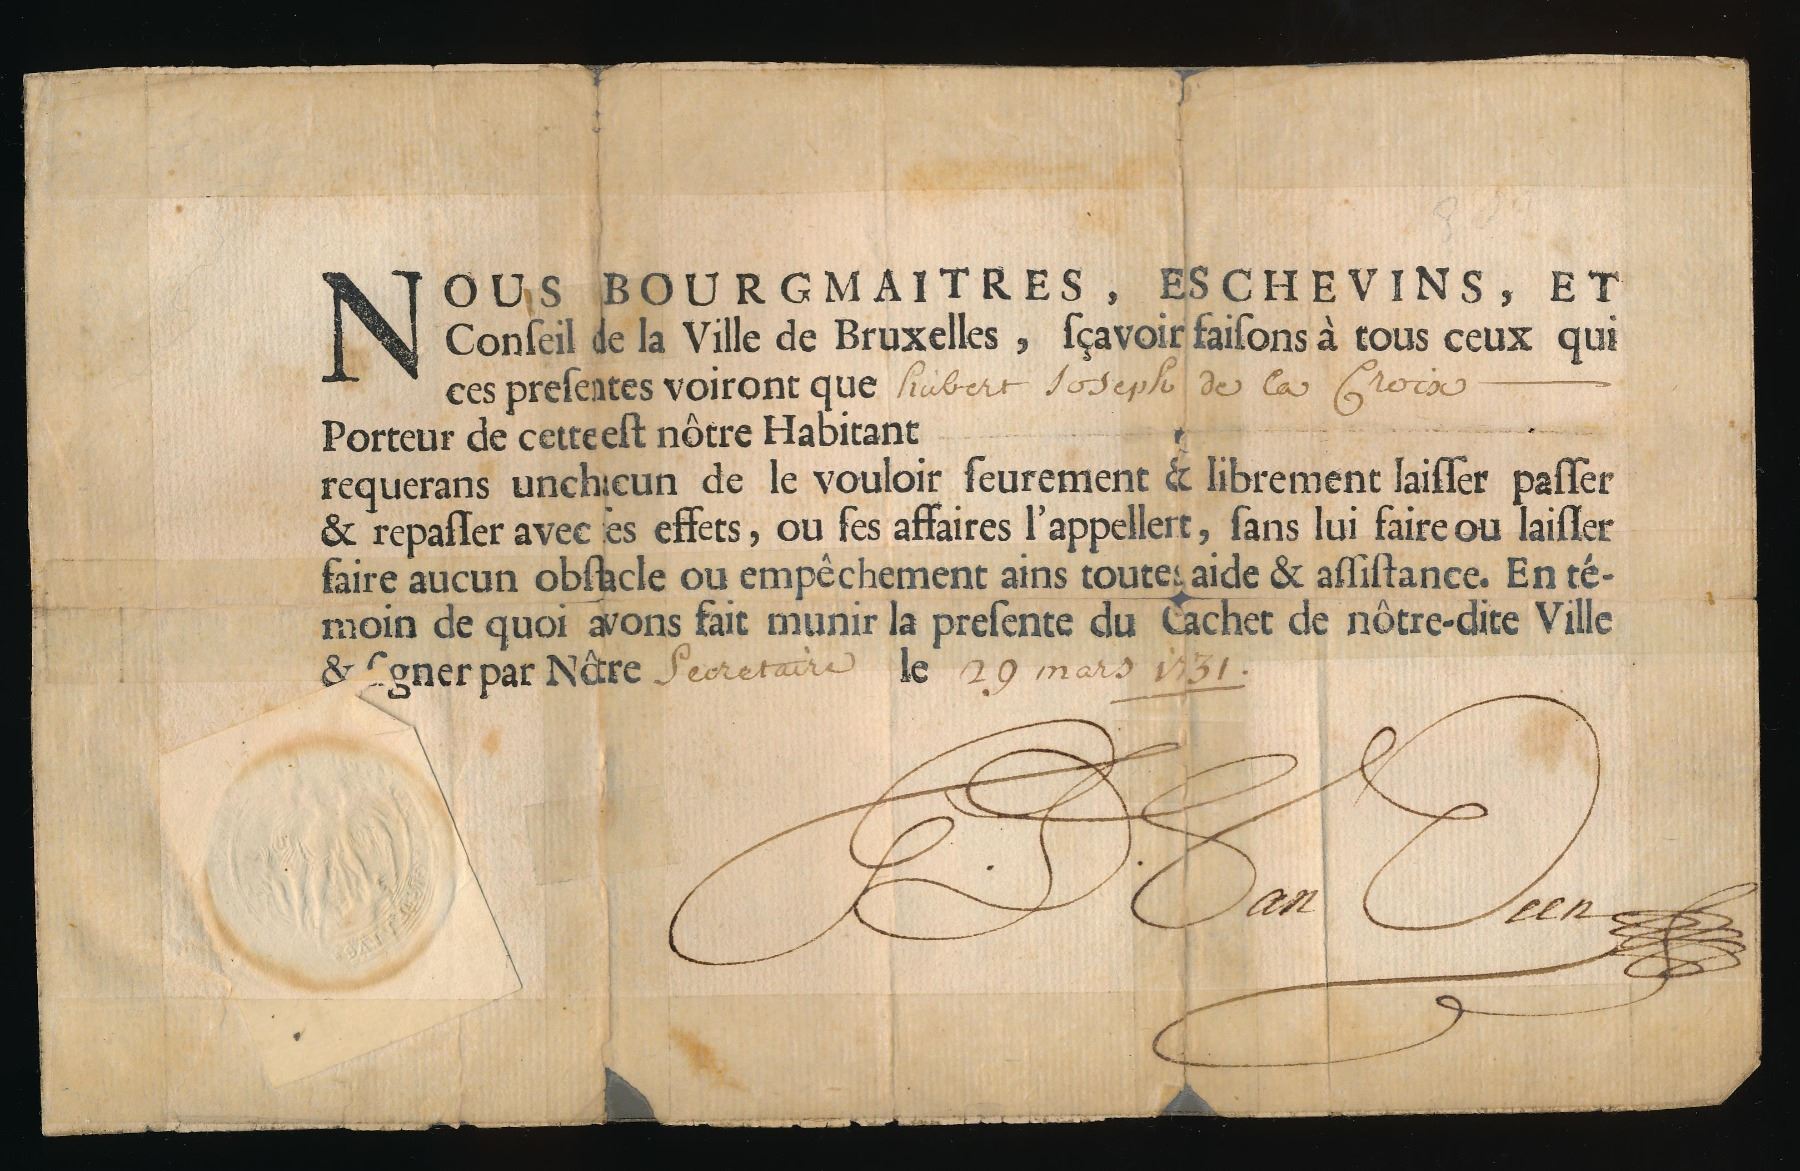 NOUS BOURGMAITRES, ESCHEVINS, ET
Conſeil de la Ville de Bruxelles, ſçavoir faiſons à tous ceux qui
ces preſentes voiront que hubert Joseph de la Croix
Porteur de cette eſt nôtre Habitant
requerans unchacun de le vouloir ſeurement & librement laiſſer paſſer
& repaſſer avec ſes effets, ou ſes affaires l'appellent, ſans lui faire ou laiſſer
faire aucun obſtacle ou empêchement ains toutes aide & aſſiſtance. En té-
moin de quoi avons fait munir la preſente du Cachet de nôtre-dite Ville
& ſigner par Nôtre Secretaire le 29 mars 1731.
Van Veen